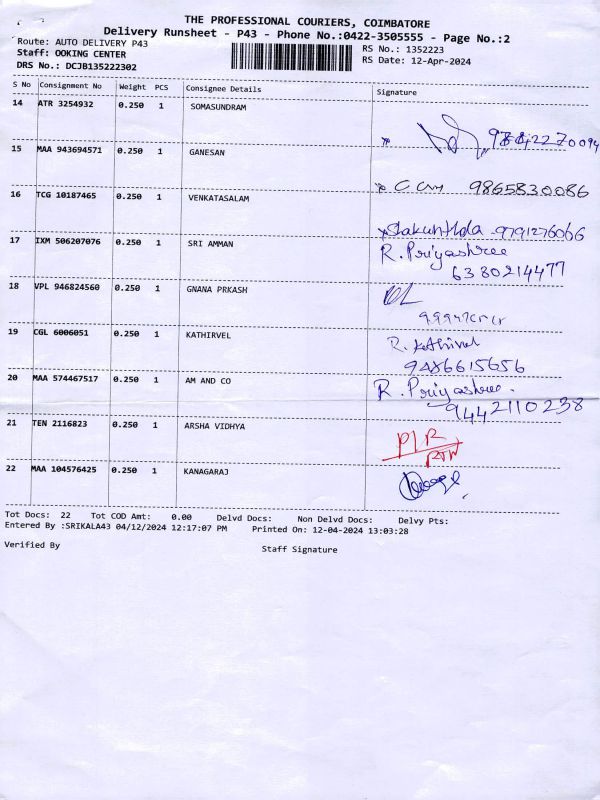 THE PROFESSIONAL COURIERS, COIMBATORE
Delivery Runsheet - P43 - Phone No.:0422-3505555 - Page No.:2
Route: AUTO DELIVERY P43
RS No.: 1352223
Staff: OOKING CENTER
RS Date: 12-Apr-2024
DRS No.: DCJB135222302
S No Consignment No Weight PCS Consignee Details Signature
14 ATR 3254932 0.250 1 SOMASUNDRAM
15 MAA 943694571 0.250 1 GANESAN
9865830086
16 TCG 10187465 0.250 1 VENKATASALAM
Shakunthla - 9791276066
17 IXM 506207076 0.250 1 SRI AMMAN R. Priyashree
6380214477
18 VPL 946824560 0.250 1 GNANA PRKASH
19 CGL 6006051 0.250 1 KATHIRVEL R. Kathirvel
9486615656
20 MAA 574467517 0.250 1 AM AND CO R. Priyashree.
9442110238
21 TEN 2116823 0.250 1 ARSHA VIDHYA
22 MAA 104576425 0.250 1 KANAGARAJ
Tot Docs: 22 Tot COD Amt: 0.00 Delvd Docs: Non Delvd Docs: Delvy Pts:
Entered By :SRIKALA43 04/12/2024 12:17:07 PM Printed On: 12-04-2024 13:03:28
Verified By Staff Signature